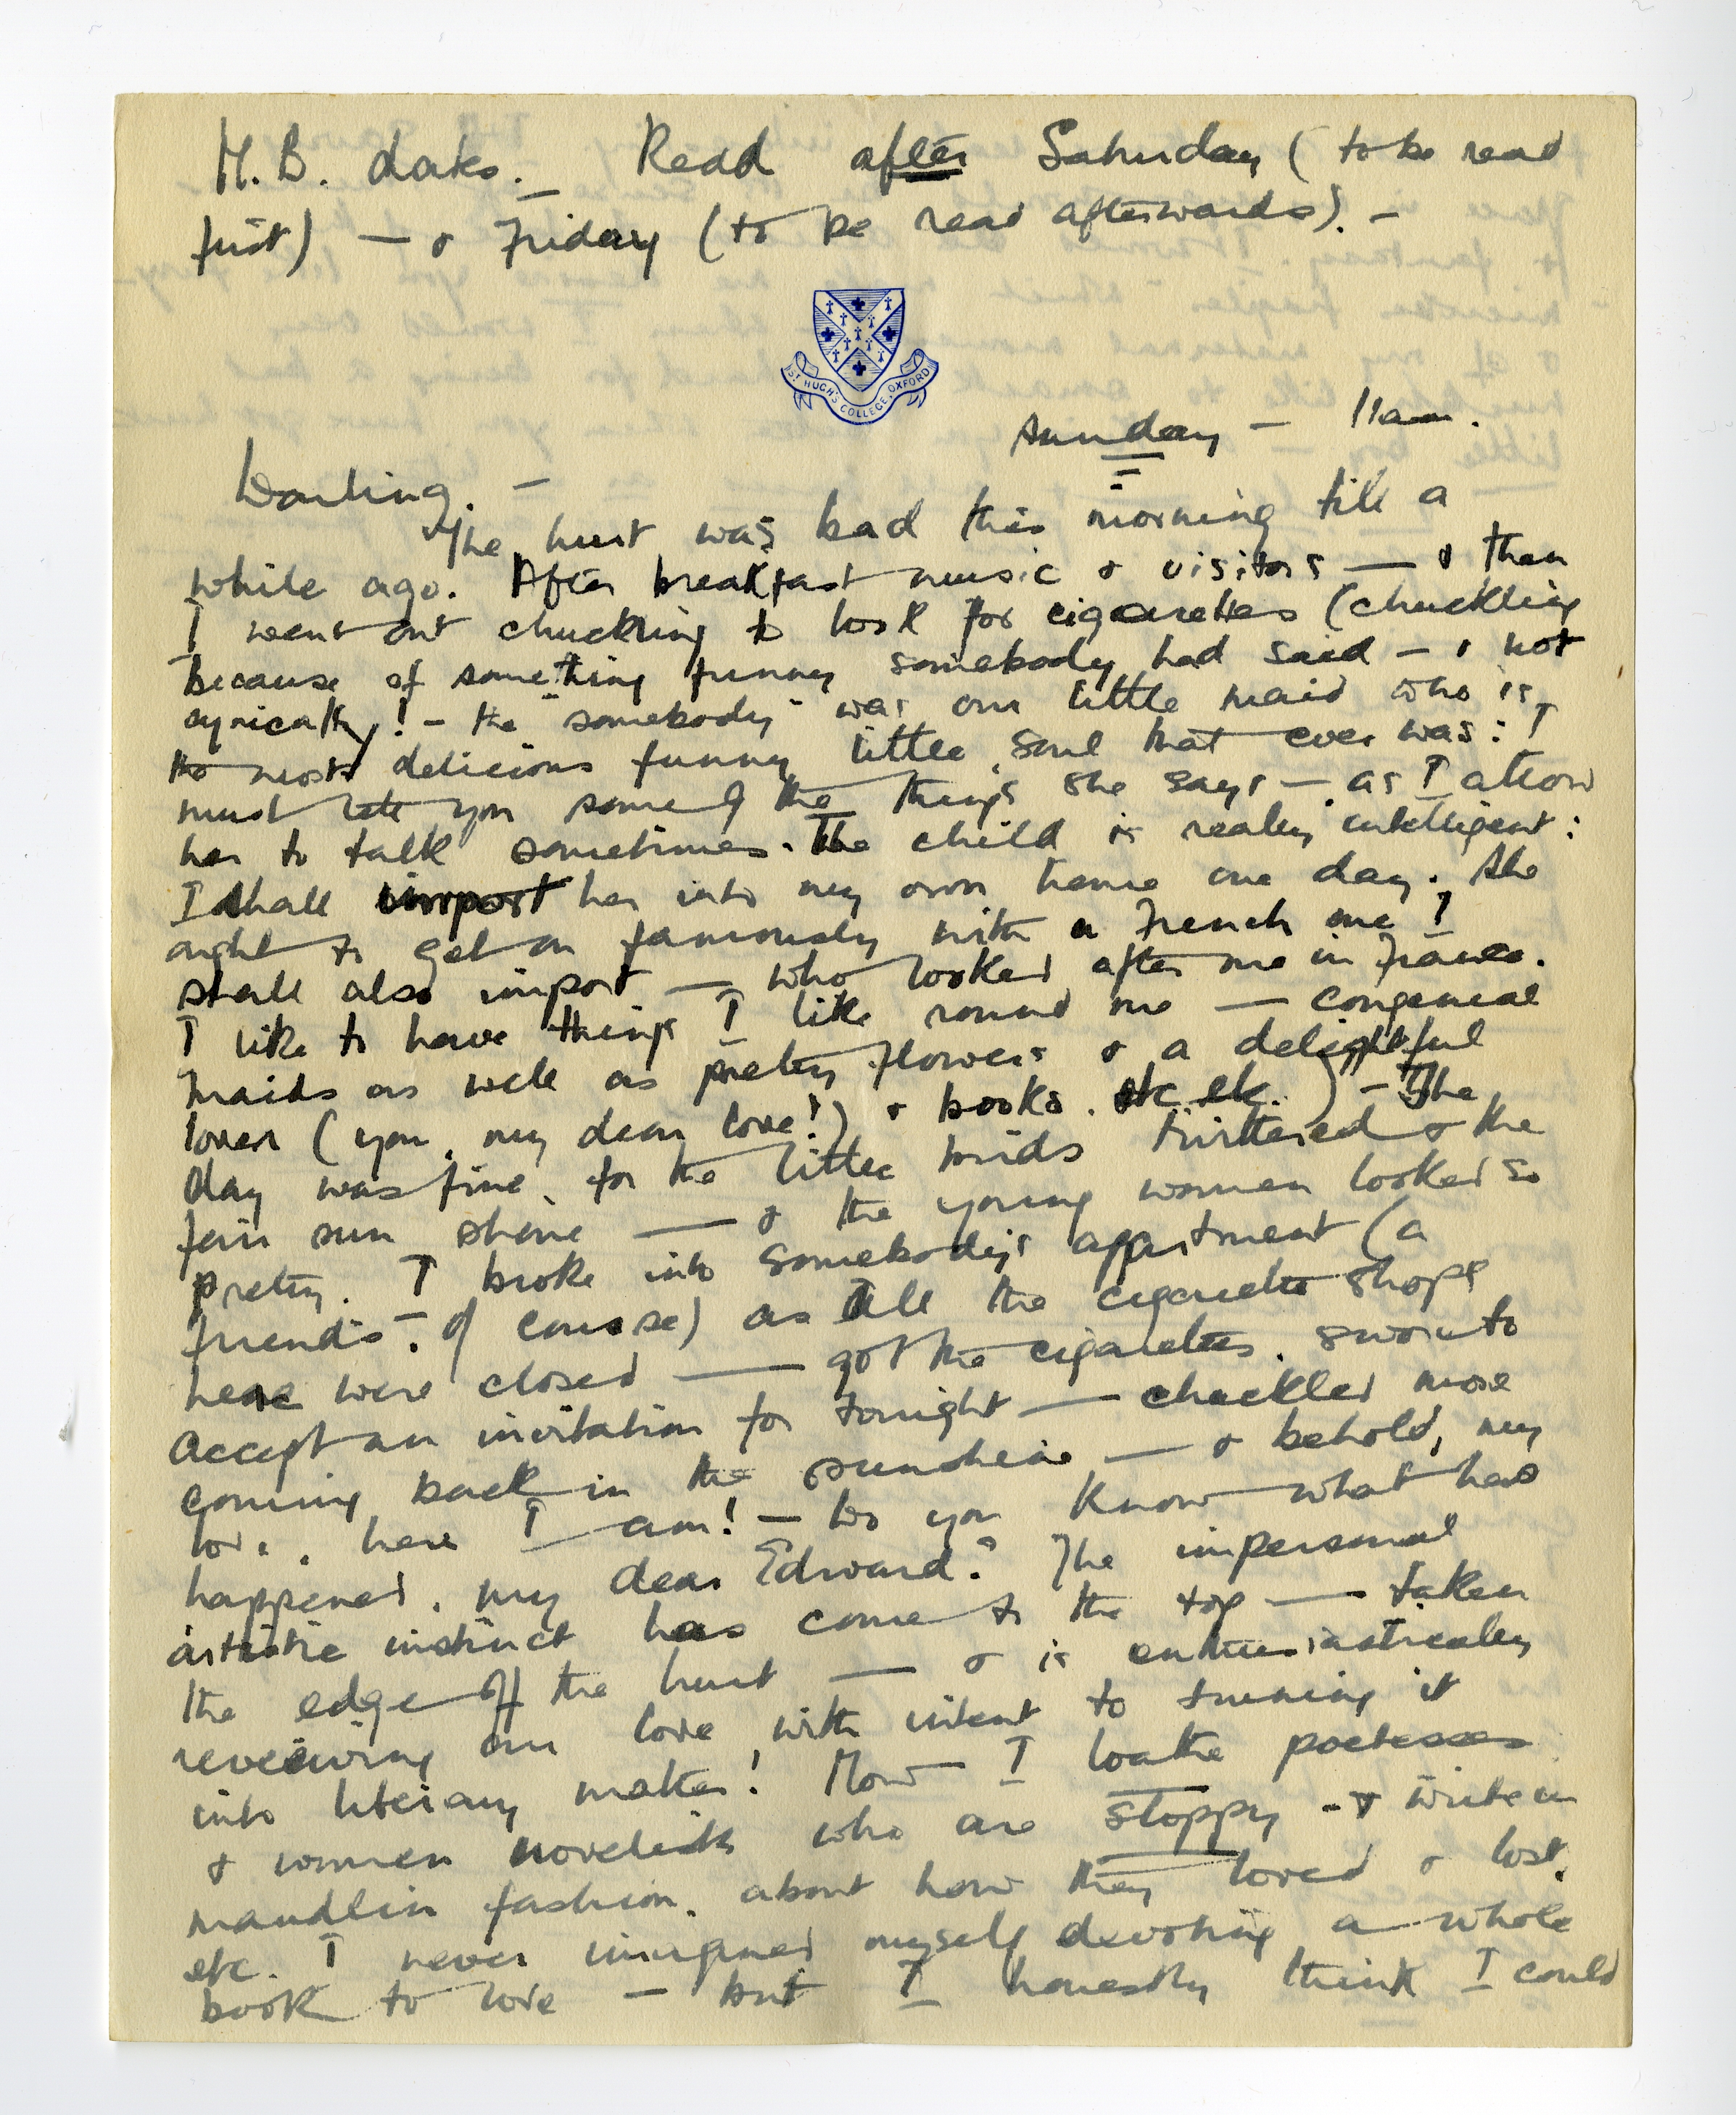 N.B. dates. — Read after Saturday (to be read
first) — & Friday (to be read afterwards). —
ST HUGH'S COLLEGE, OXFORD
Sunday — 11am.
Darling. —
The hurt was bad this morning till a
while ago. After breakfast music & visitors — & then
I went out chuckling to look for cigarettes (chuckling
because of something funny somebody had said — & not
cynically! — the "somebody" was our little maid who is
the most delicious funny little soul that ever was: I
must tell you some of the things she says — as I allow
her to talk sometimes. The child is really intelligent:
I shall import her into my own home one day. She
ought to get on famously with a French one I
shall also import — who looked after me in France.
I like to have things I like round me — congenial
maids as well as pretty flowers & a delightful
lover (you, my dear love!) & books. etc. etc.) — The
day was fine, for the little birds twittered & the
fair sun shone — & the young women looked so
pretty. I broke into somebody's appartment (a
friend's — of course) as all the cigarette shops
here were closed — got the cigarettes, swore to
accept an invitation for tonight — chuckled more
coming back in the sunshine — & behold, my
love, here I am! — Do you know what has
happened, my dear Edward? The impersonal
artistic instinct has come to the top — taken
the edge off the hurt — & is enthusiastically
reveiwing our love with intent to turning it
into literary matter! Now I loathe poetesses
& women novelists who are sloppy — & write in
maudlin fashion, about how they loved & lost,
etc. I never imagined myself devoting a whole
book to love — but I honestly think I could